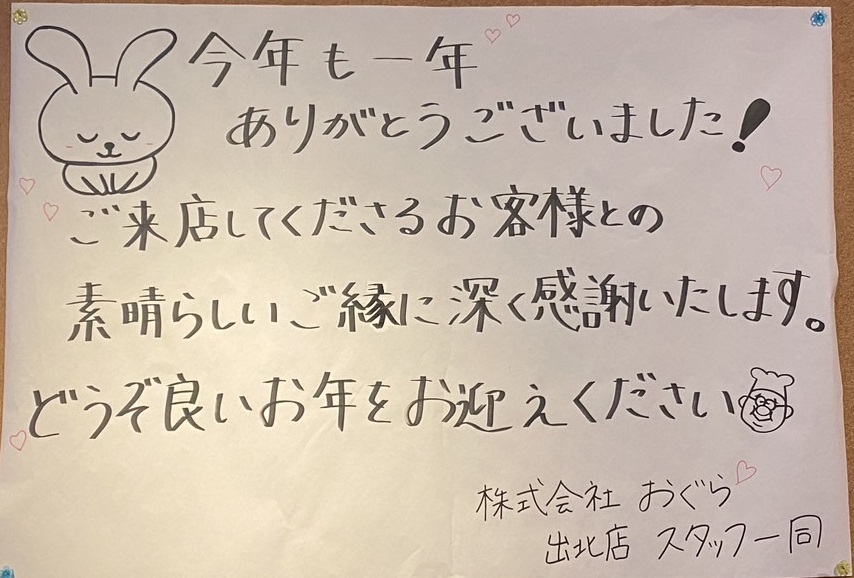 今年も一年
ありがとうございました!
ご来店してくださるお客様との
素晴らしいご縁に深く感謝いたします。
どうぞ良いお年をお迎えください
株式会社 おぐら
出北店 スタッフ一同